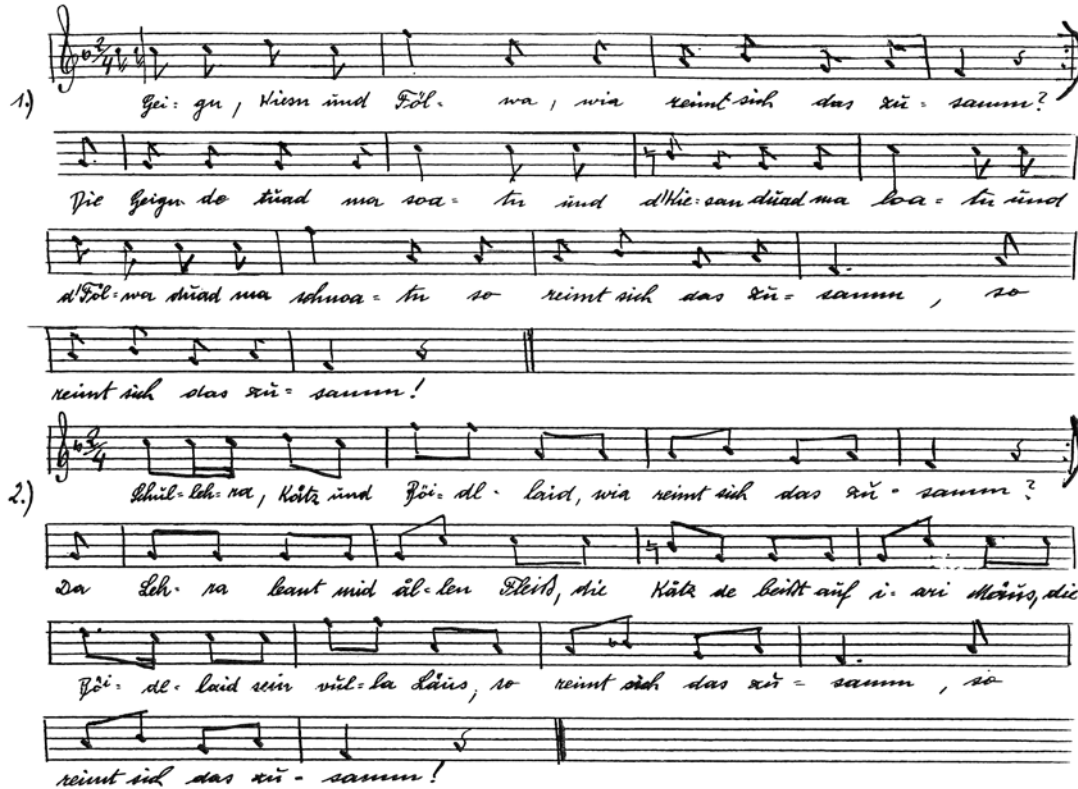 1.) Gei = gn, Wiesn und Föl = wa, wia reimt sich das zu = samm?
Die Geign de tuad ma soa = tn und d'Wie = san duad ma loa = tn und
d'Föl = wa duad ma schnoa = tn so reimt sich das zu = samm, so
reimt sich das zu = samm!
2.) Schul = leh = ra, Kåtz und Böi = dl = laid, wia reimt sich das zu = samm?
Da Leh = ra leant mid ål = len Fleiß, die Kåtz de beißt auf i = ari Mäus, die
Böi = dl = laid sein vul = la Läus, so reimt sich das zu = samm, so
reimt sich das zu = samm!